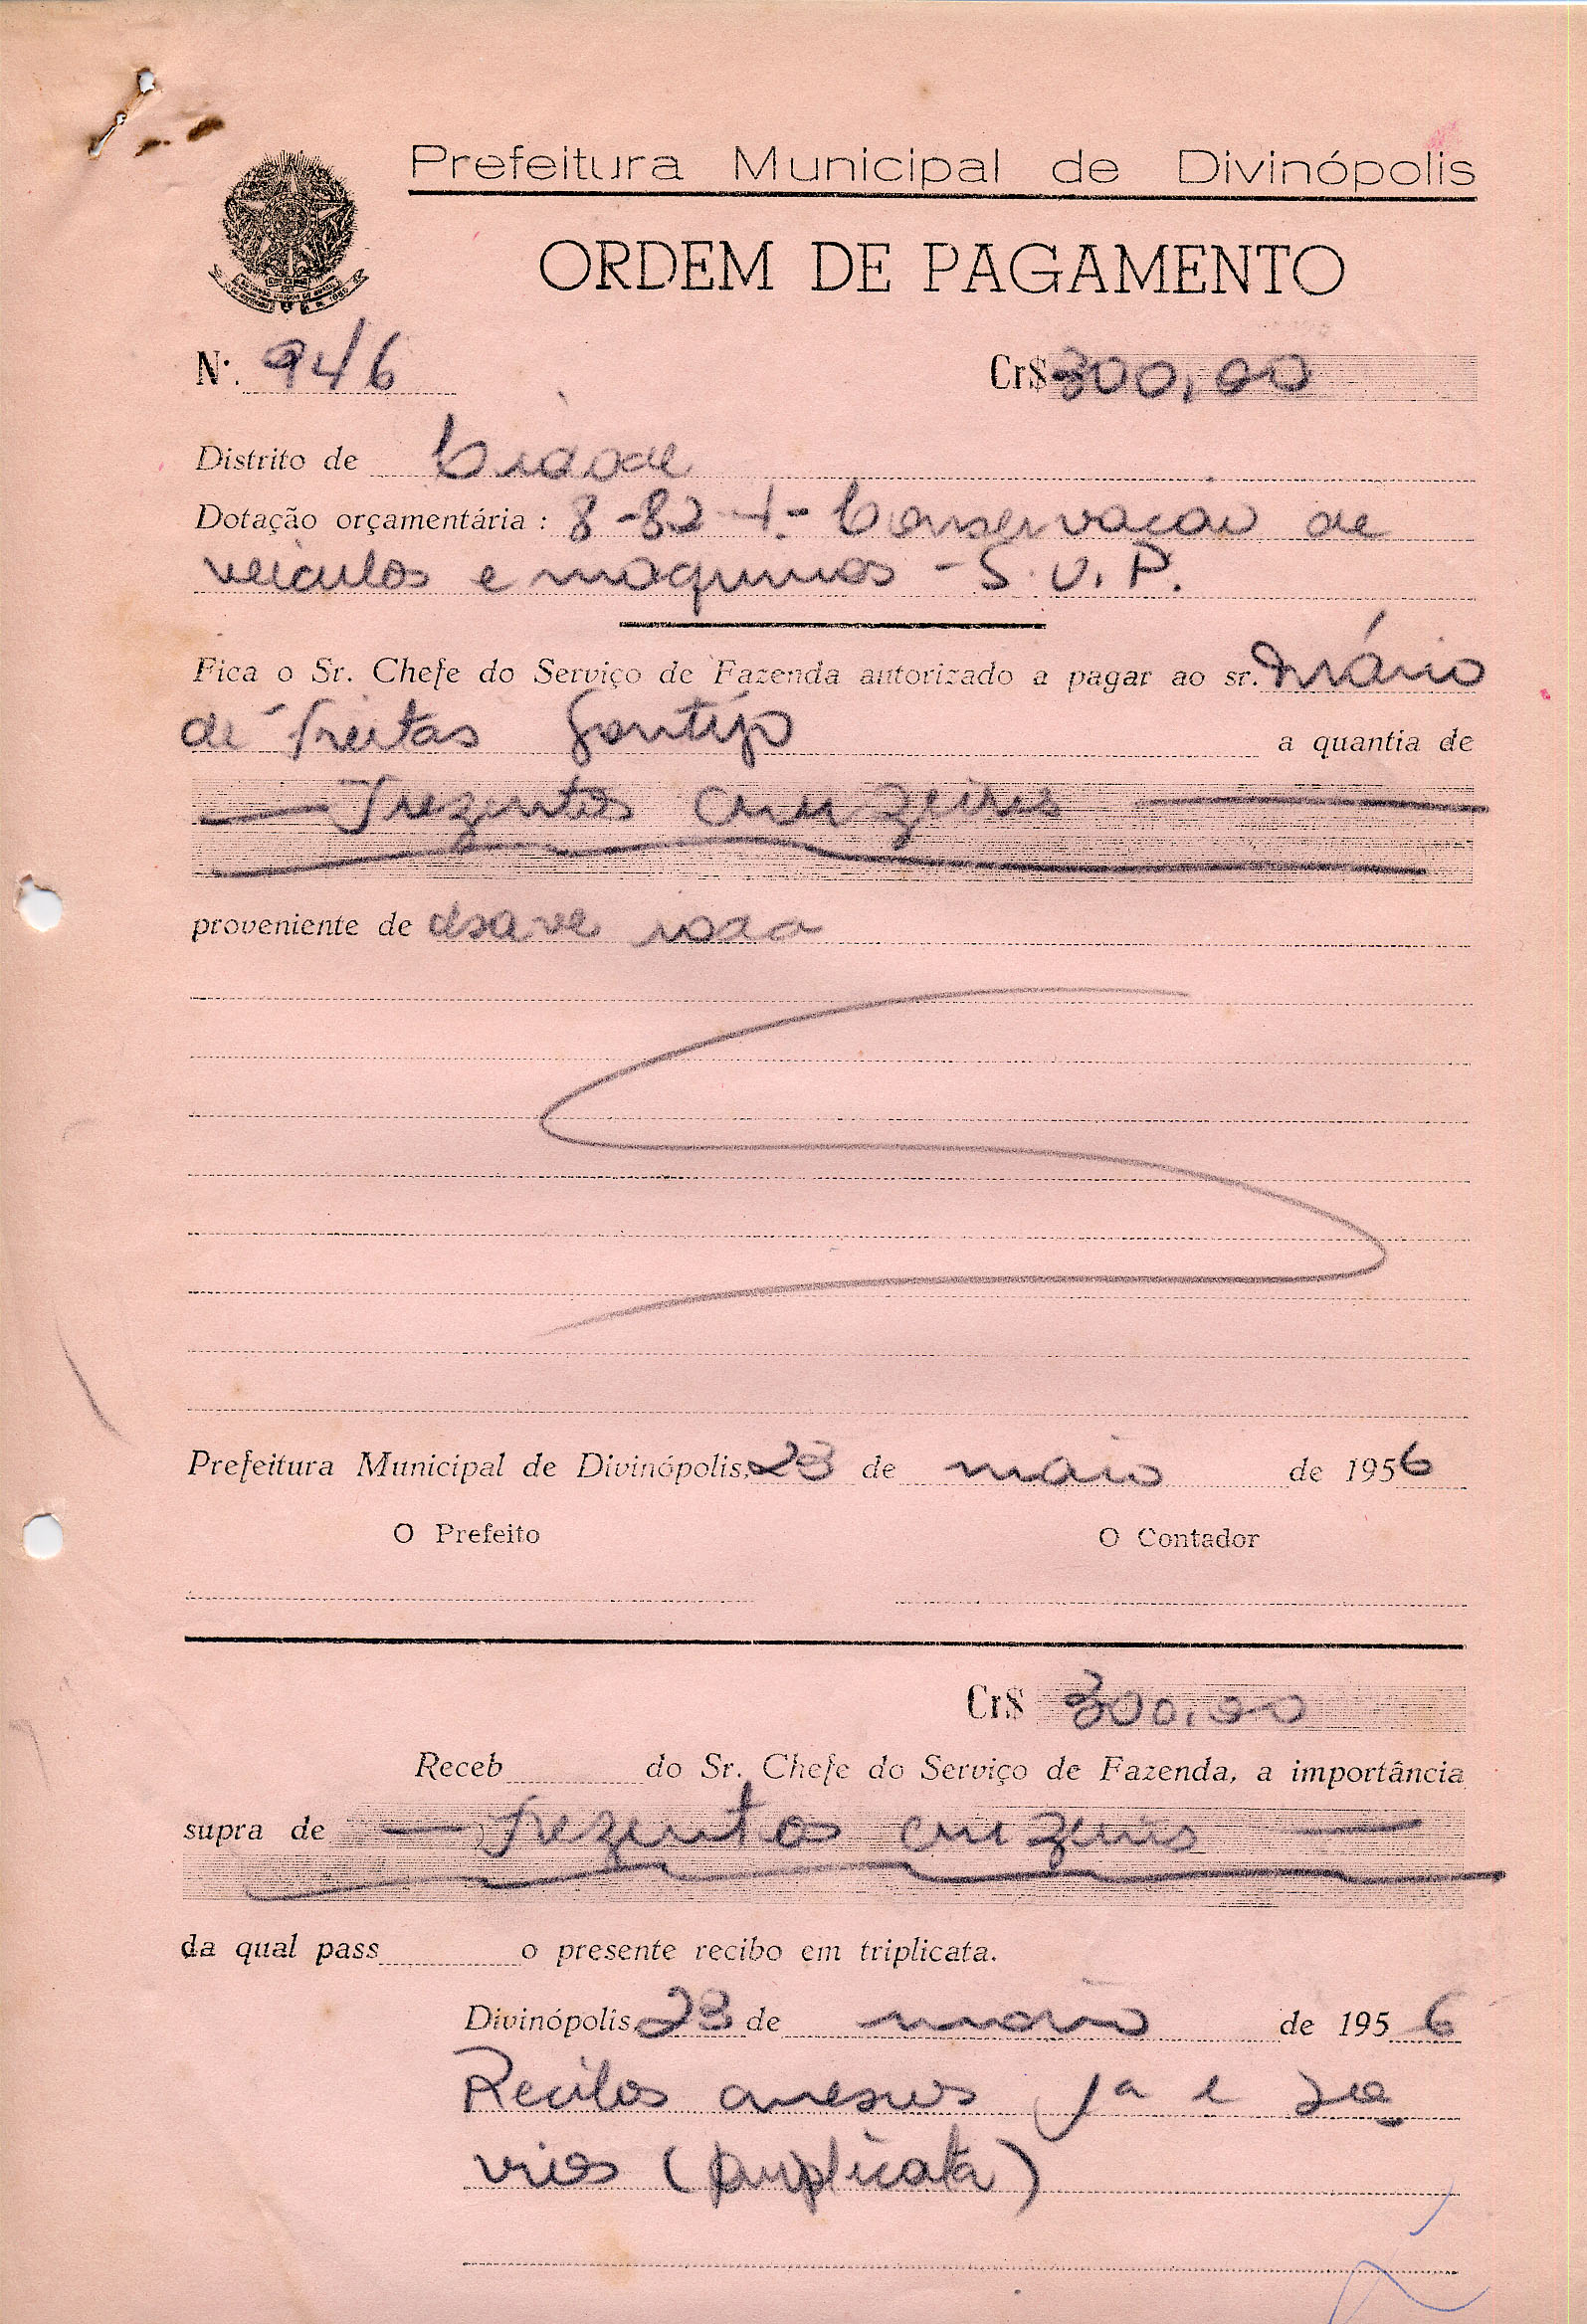 Prefeitura Municipal de Divinópolis
ORDEM DE PAGAMENTO
N. 946 Cr$ 300,00
Distrito de Cidade
Dotação orçamentária: 8-82-4 - Conservação de
veículos e maquinas - S.U.P.
Fica o Sr. Chefe do Serviço de Fazenda autorizado a pagar ao sr. Mário
de Freitas Gontijo a quantia de
Trezentos cruzeiros
proveniente de
Prefeitura Municipal de Divinópolis, 23 de maio de 1956
O Prefeito O Contador
Cr$ 300,00
Receb do Sr. Chefe do Serviço de Fazenda, a importância
supra de trezentos cruzeiros
da qual pass o presente recibo em triplicata.
Divinópolis, 23 de maio de 1956
Recibos anexos 1ª e 2ª
vias (duplicata)